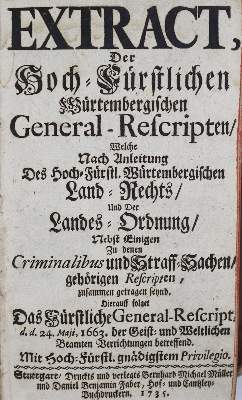 EXTRACT,
Der
Hoch-Fürstlichen
Würtembergischen
General-Rescripten/
Welche
Nach Anleitung
Des Hoch-Fürstl. Würtembergischen
Land-Rechts/
Und Der
Landes-Ordnung/
Nebst Einigen
Zu denen
Criminalibus und Straff-Sachen/
gehörigen Rescripten,
zusammen getragen seynd.
Hierauff folget
Das Fürstliche General-Rescript,
d. d. 24. Maji, 1663. der Geist- und Weltlichen
Beamten Verrichtungen betreffend.
Mit Hoch-Fürstl. gnädigstem Privilegio.
Stuttgart, Druckts und verlegts Bernhard Michael Müller
und Daniel Benjamin Faber, Hof- und Cantzley-
Buchdruckern. 1735.